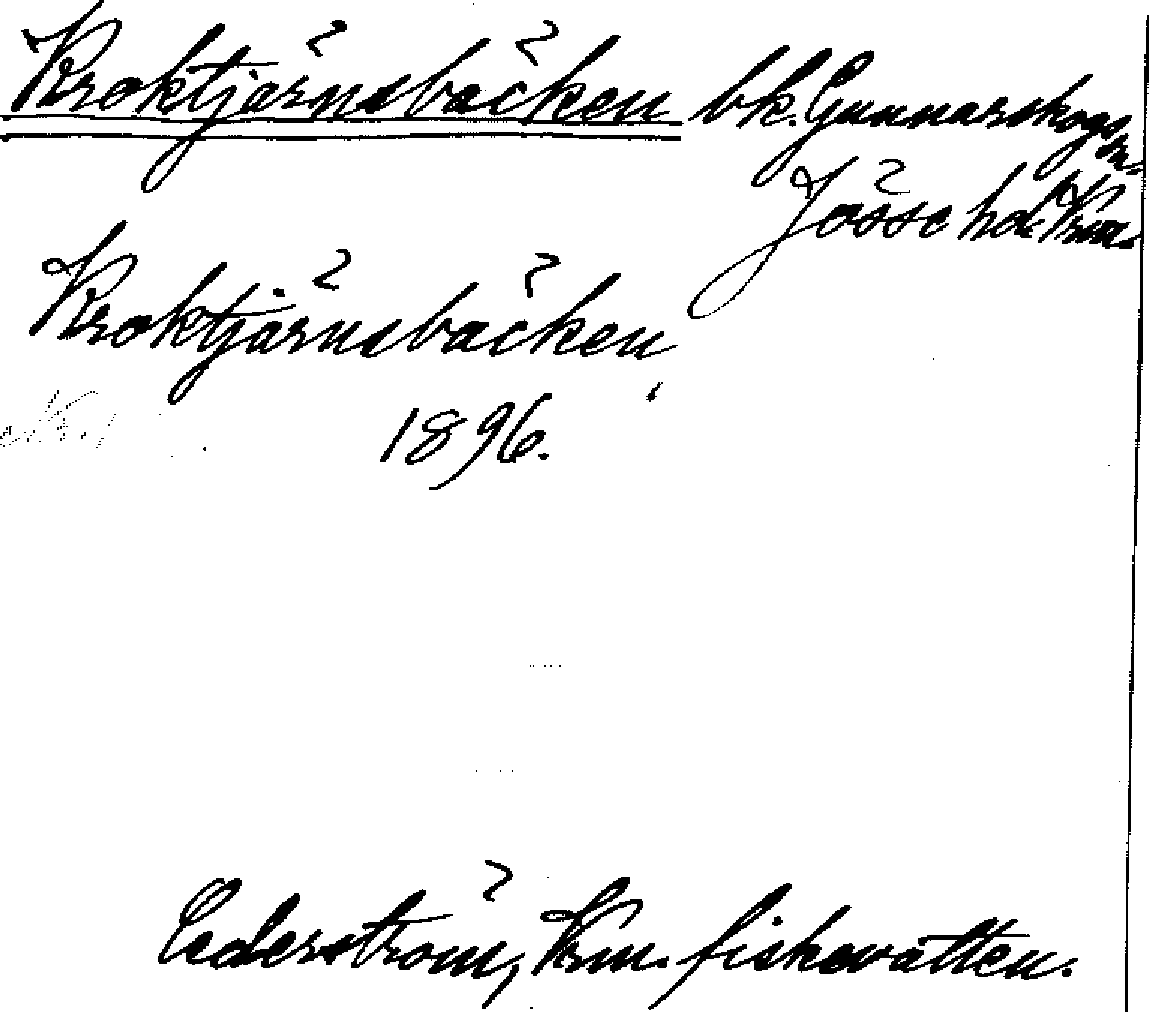 Kroktjärnsbäcken bk. Gunnarskogs sn.
Jösse hd. Vrm.
Kroktjärnsbäcken,
1896.
Cederström, Vrm. fiskevatten.